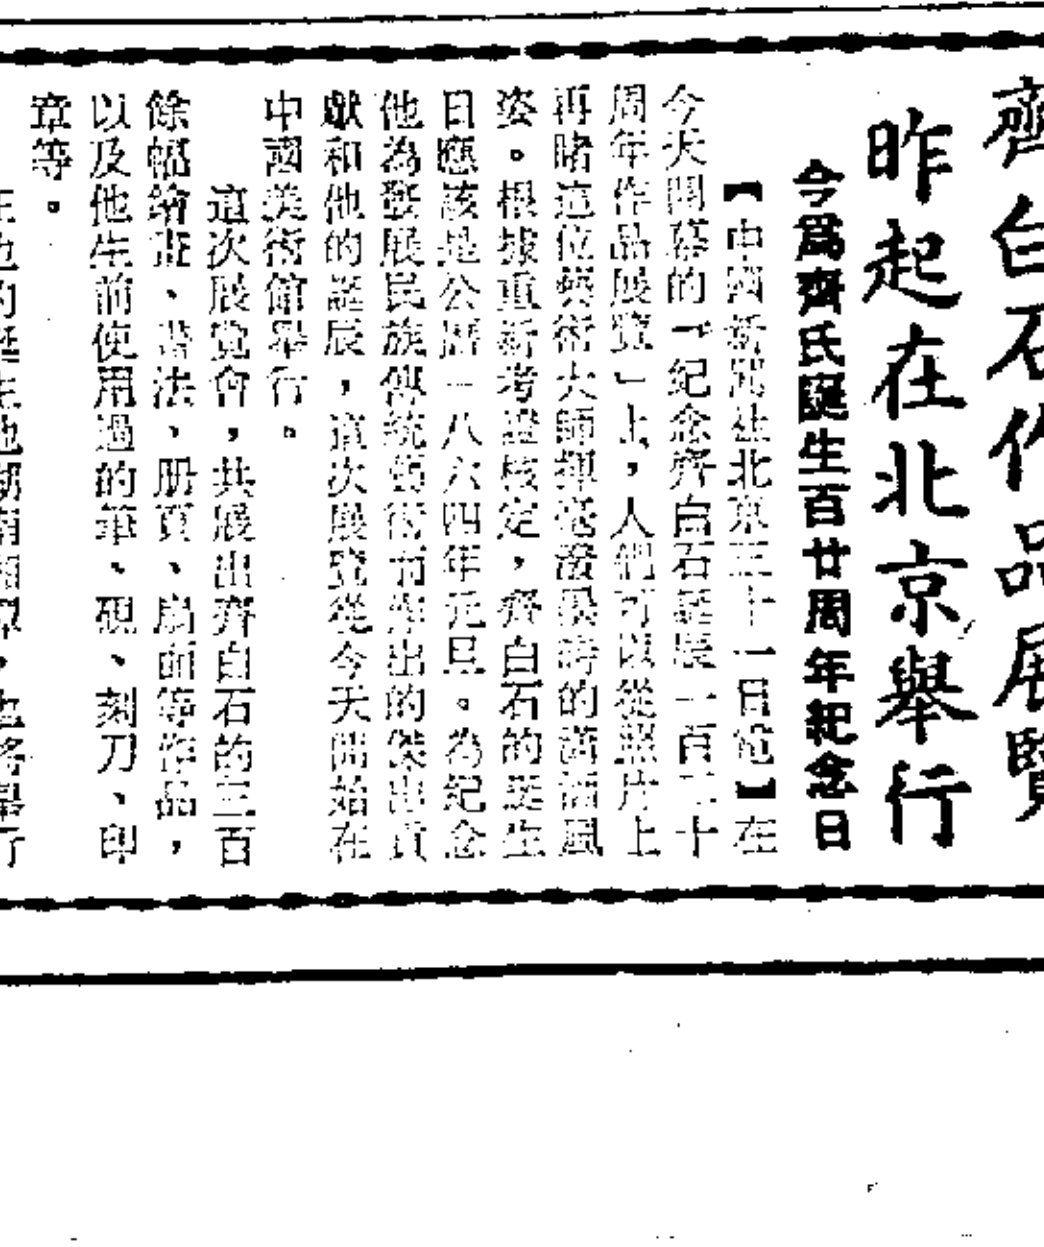 齊白石作品展覽
昨起在北京舉行
今爲齊氏誕生百廿周年紀念日
【中國新聞社北京三十一日電】在
今天開幕的「紀念齊白石誕辰一百二十
周年作品展覽」上，人們可以從照片上
再睹這位藝術大師揮毫潑墨時的瀟洒風
姿。根據重新考證核定，齊白石的誕生
日應該是公曆一八六四年元旦。為紀念
他為發展民族傳統藝術而作出的傑出貢
獻和他的誕辰，這次展覽從今天開始在
中國美術館舉行。
這次展覽會，共展出齊白石的三百
餘幅繪畫、書法、册頁、扇面等作品，
以及他生前使用過的筆、硯、刻刀、印
章等。
在他的誕生地湖南湘潭，也將舉行